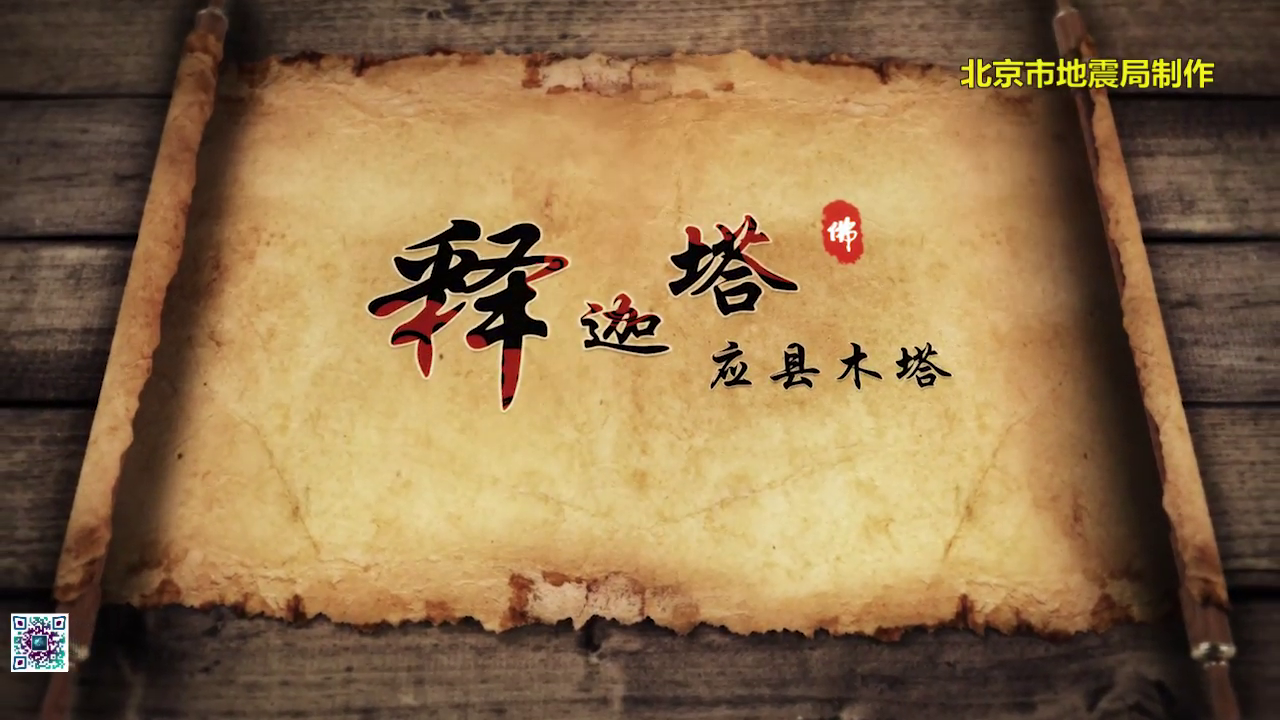 北京市地震局制作
释迦塔
佛
应县木塔